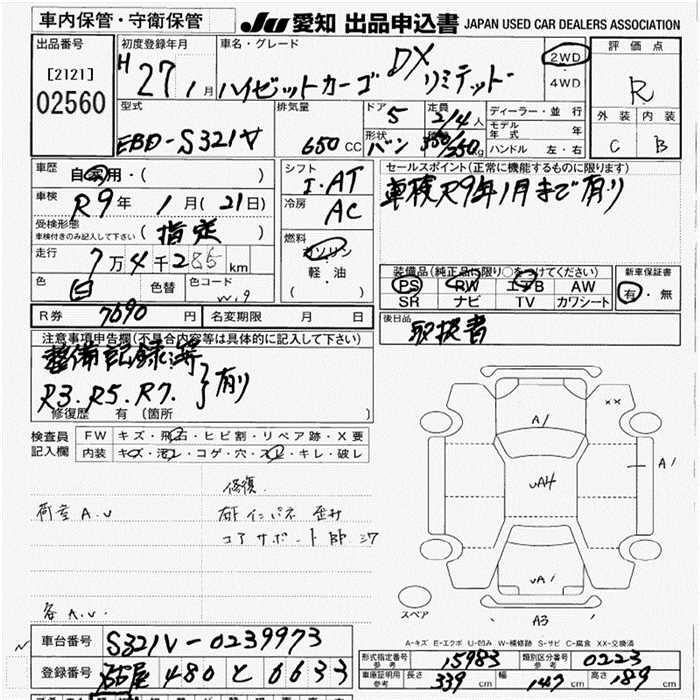 車内保管・守衛保管 JU 愛知 出品申込書 JAPAN USED CAR DEALERS ASSOCIATION
出品番号 初度登録年月 車名・グレード 評価点
[2121] H27年 1月 ハイゼットカーゴ DX リミテッド 2WD・4WD R
02560 型式 排気量 ドア 5 定員 2/4人 ディーラー・並行 外装 内装
EBD-S321V 650CC 形状 バン 350/250kg モデル年式 年 ハンドル 左・右 C B
車歴 自家用・( ) シフト セールスポイント(正常に機能するものに限ります)
車検 R9年 1月(21日) I・AT 車検R9年1月まで有り
受検形態 車検付きのみ記入して下さい (指定) 冷房 AC
走行 7万4千285km 燃料 ガソリン 軽・油 ( )
色 白 色替 色コード W19
装備品(純正品に限り○をつけてください) 新車保証書
PS RW エアB AW 有・無
SR ナビ TV カワシート
R券 7690円 名変期限 月 日 後日品 取扱書
注意事項申告欄(不具合内容等は具体的に記入して下さい)
整備記録簿
R3.R5.R7. }有り
修復歴 有(箇所 )
検査員記入欄 FW キズ・飛石・ヒビ割・リペア跡・X要
内装 キズ・汚レ・コゲ・穴・スレ・キレ・破レ
修復
荷室 A.U 右F インパネ 歪ミ
コアサポート 即 37
各 A.U.
A1 ×× A1 UA4 UA1 A3
スペア
A-キズ E-エクボ U-凹み W-補修跡 S-サビ C-腐食 XX-交換済
車台番号 S321V-0239973
登録番号 名古屋 480 と 6633
形式指定番号 参考 15983 類別区分番号 参考 0223
車庫証明用 参考 長さ 339cm 幅 147cm 高さ 189cm